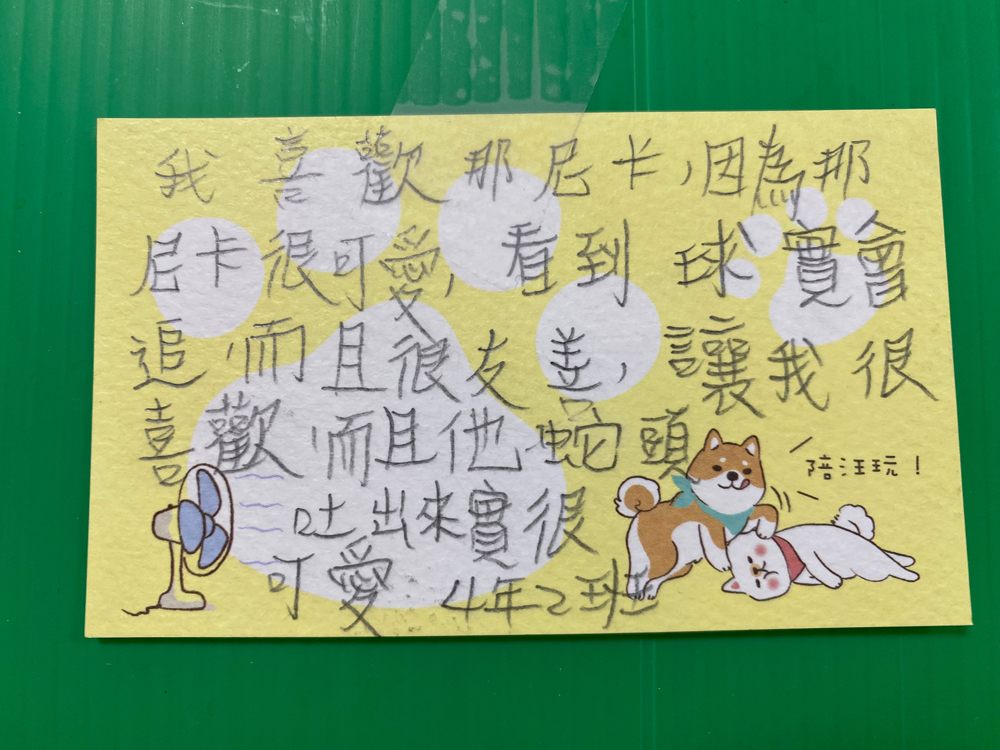 我喜歡那尼卡,因為那
尼卡很可愛,看到球實會
追,而且很友善,讓我很
喜歡,而且他蛇頭
吐出來實很
可愛
4年2班
陪汪玩!